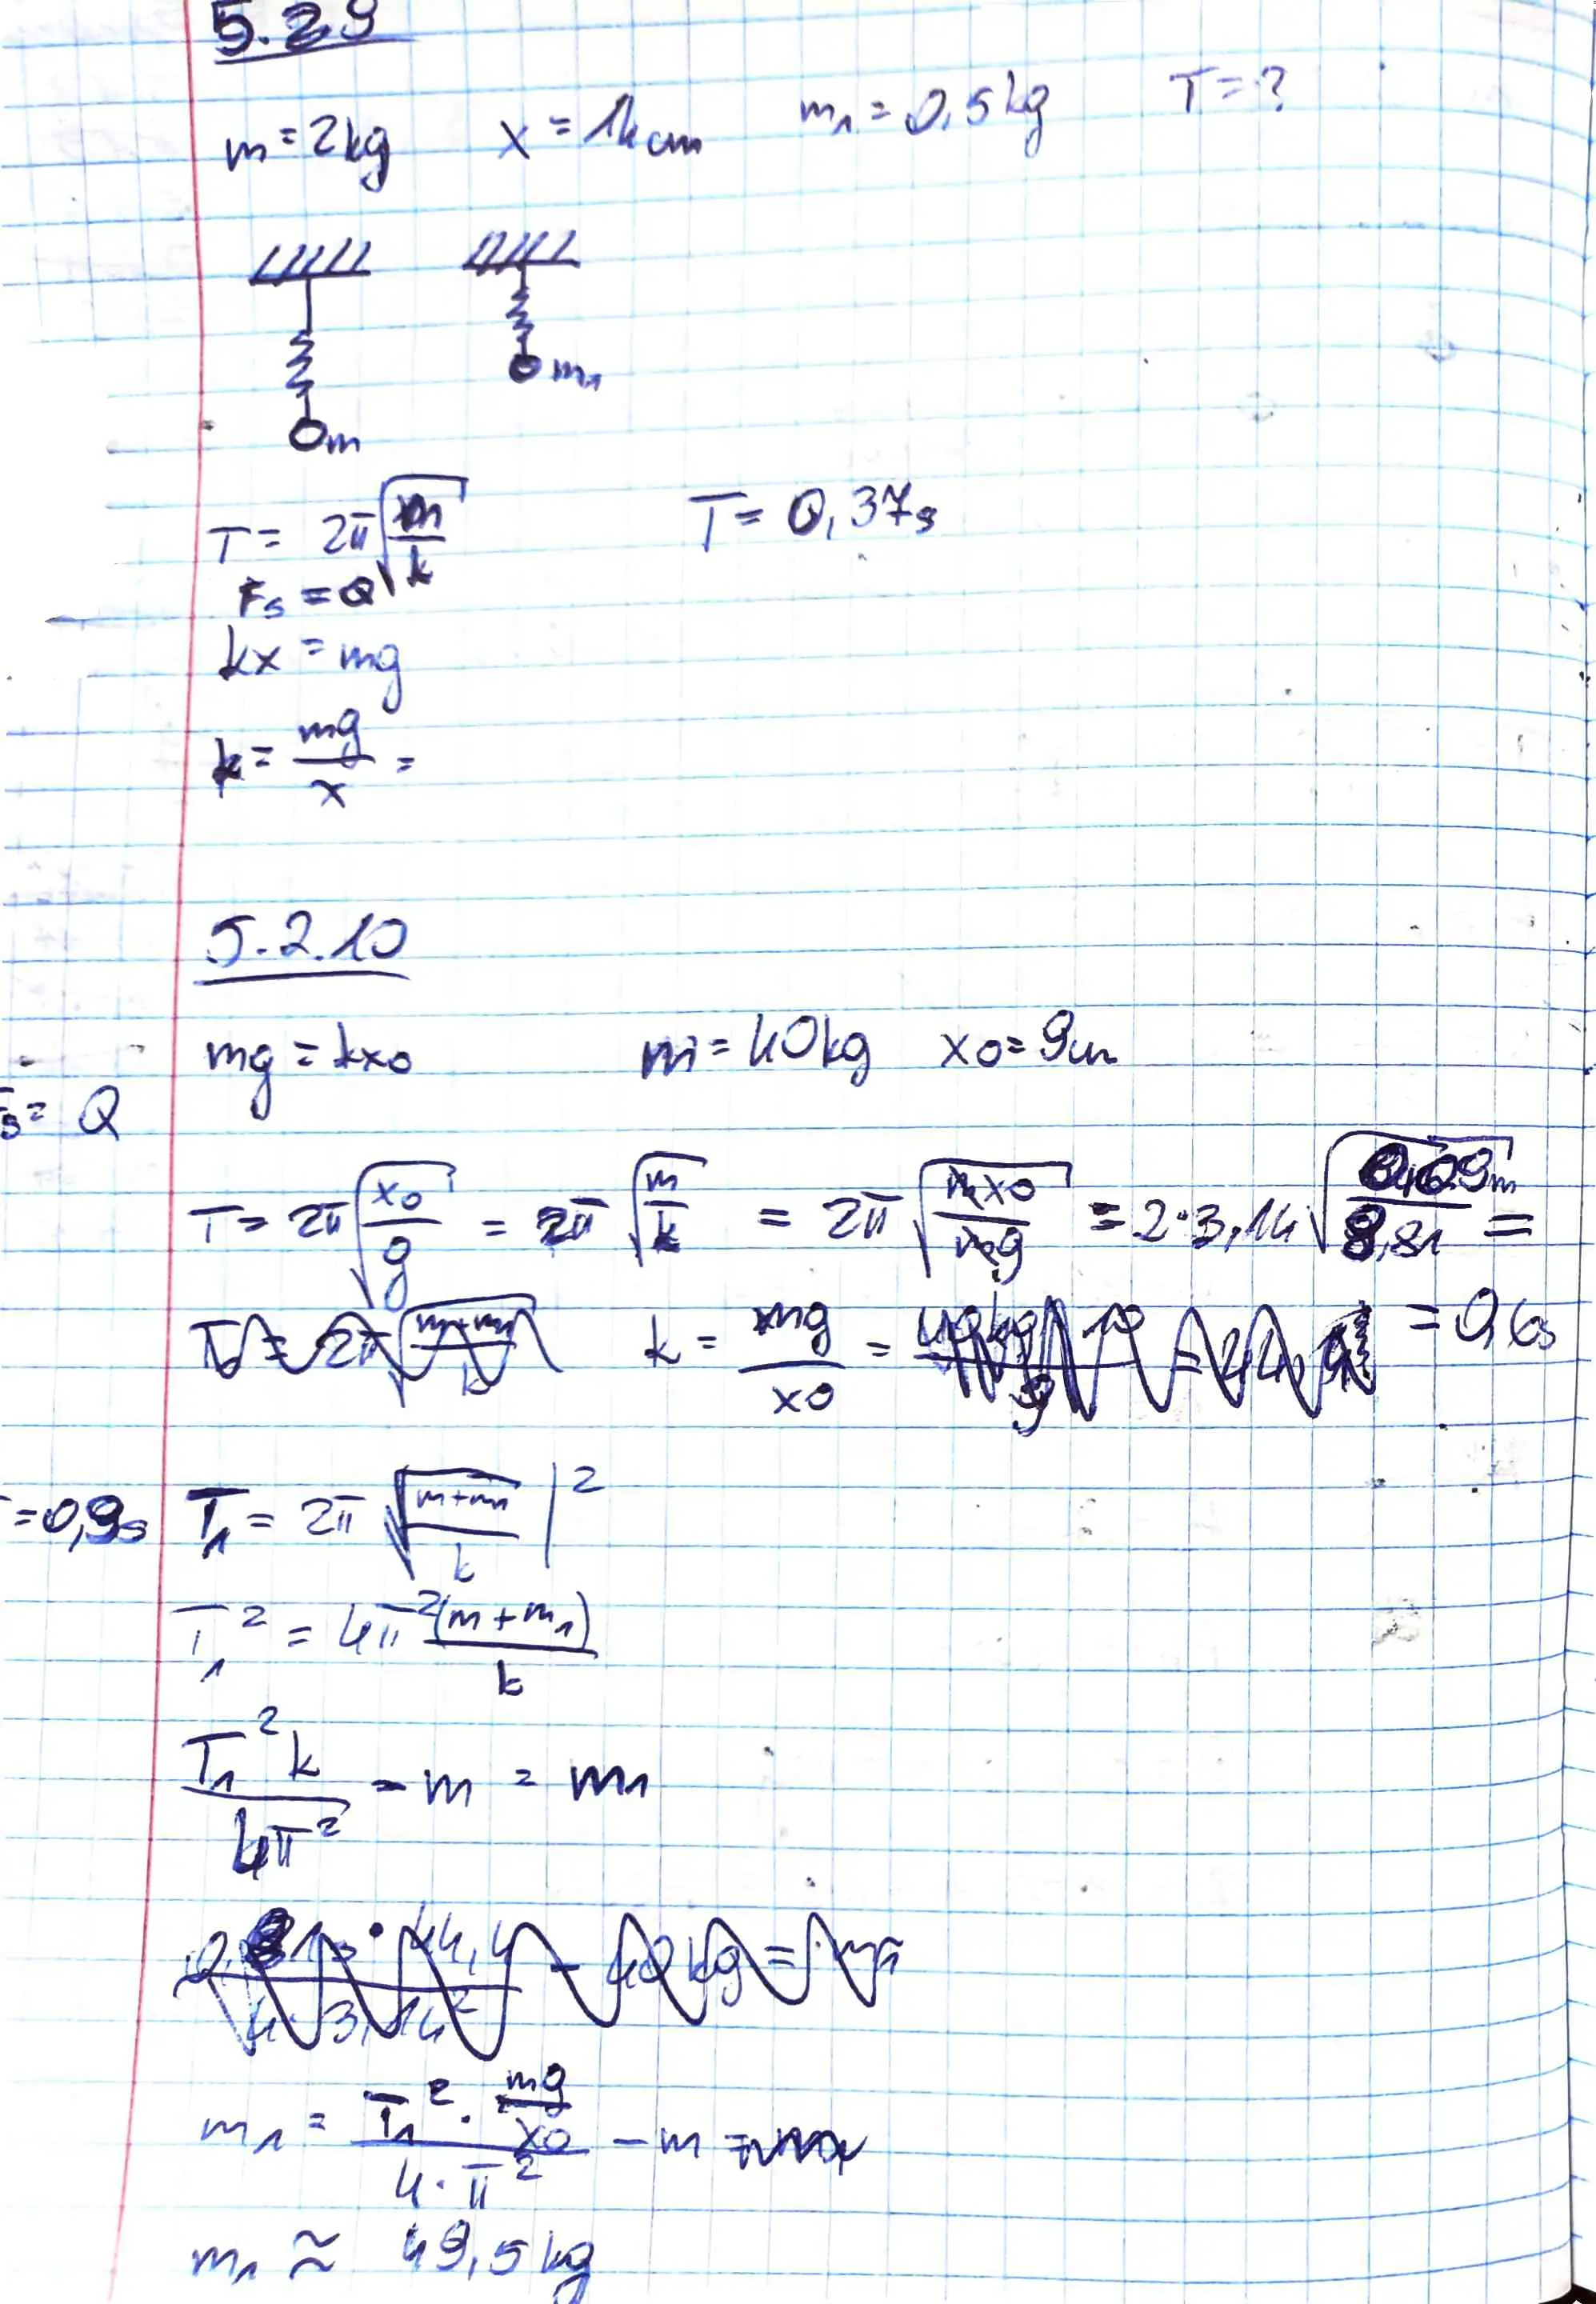 5.29
m = 2kg x = 14cm m₁ = 0,5kg T = ?
m m₁
T = 2π√(m/k) T = 0,37s
Fs = Q
kx = mg
k = mg/x =
5.2.10
mg = kx0 m = 40kg x0 = 9cm
s = Q
T = 2π√(x0/g) = 2π√(m/k) = 2π√(mx0/mg) = 2·3,14√(0,09m/9,81) =
k = mg/x0 = = 0,6s
= 0,9s T₁ = 2π√((m+m₁)/k) |²
T₁² = 4π²(m+m₁)/k
T₁²k/4π² - m = m₁
m₁ = (T₁² · mg/x0)/(4·π²) - m
m₁ ≈ 49,5kg